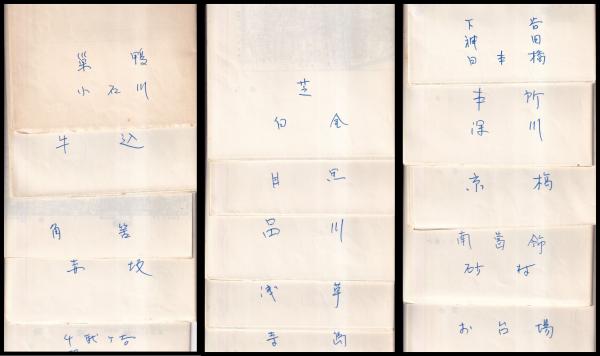 巣鴨
小石川
牛込
角筈
赤坂
千駄ヶ谷
芝
白金
目黒
品川
浅草
下谷
神田
日本橋
本所
深川
京橋
南葛飾
砂村
お台場